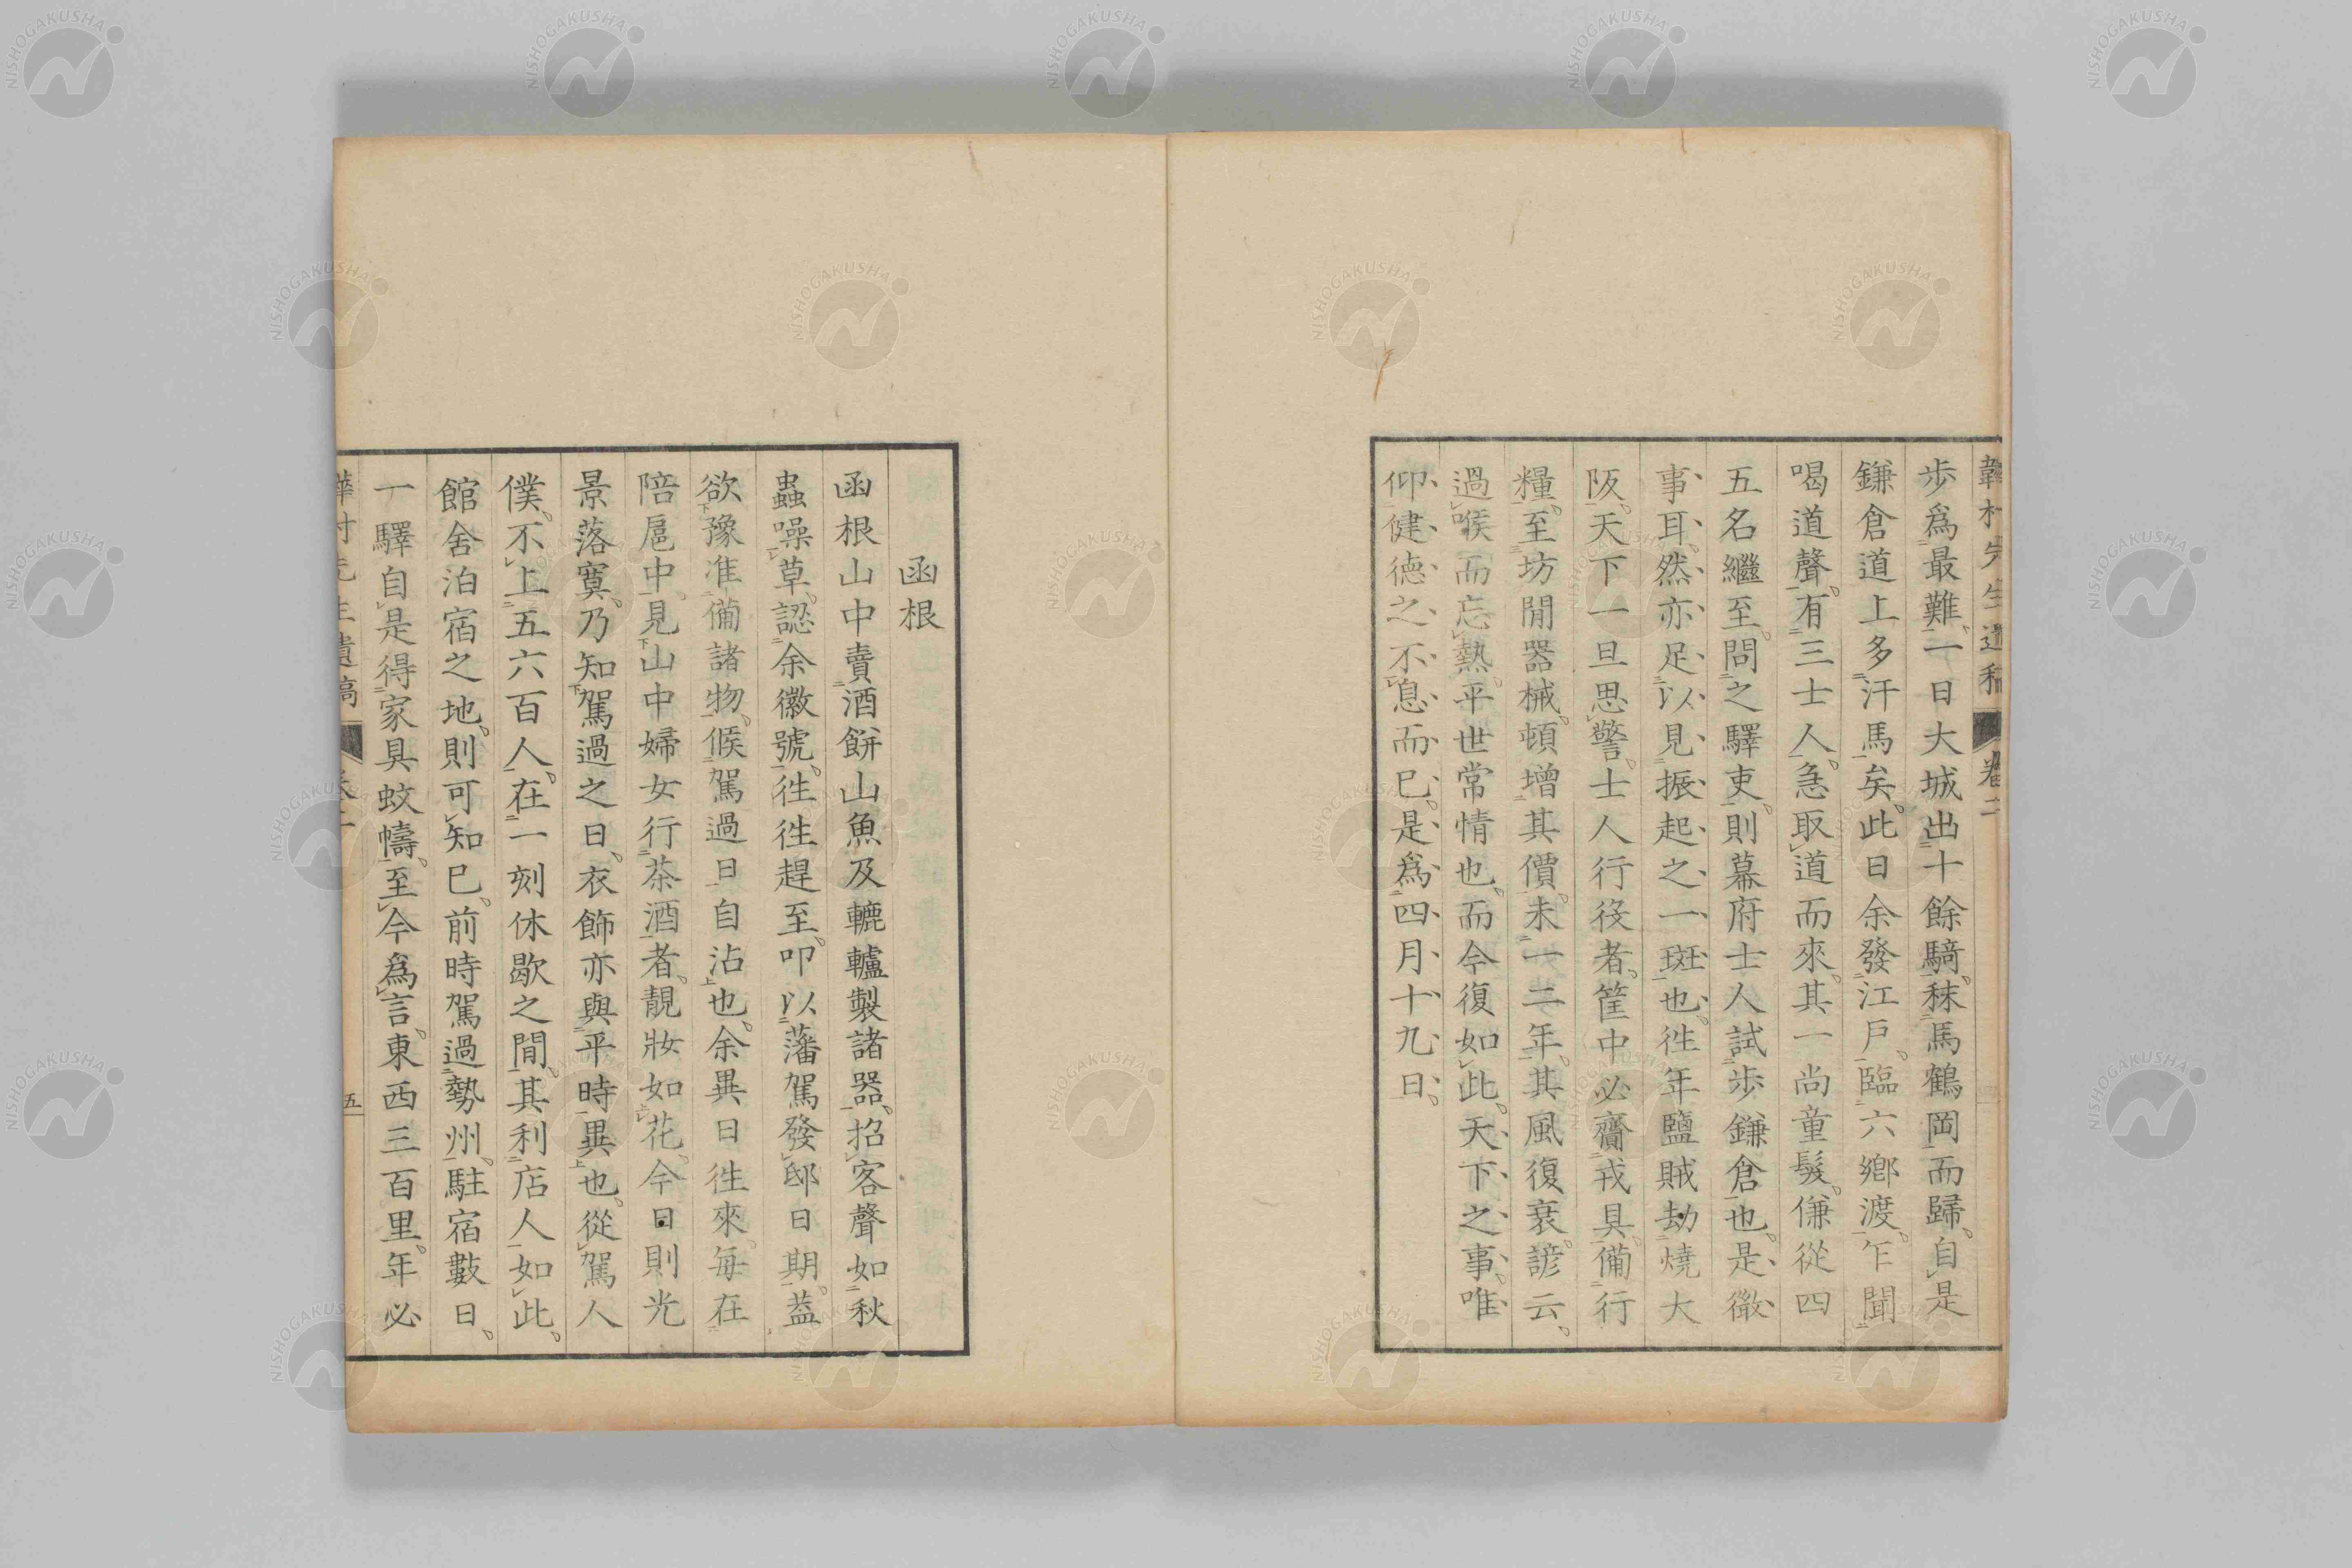 韡村先生遺稿 卷二
歩爲最難一日大城出十餘騎秣馬鶴岡而歸自是
鎌倉道上多汗馬矣此日余發江戸臨六鄉渡乍聞
喝道聲有三士人急取道而來其一尚童髮傔從四
五名繼至問之驛吏則幕府士人試歩鎌倉也是徴
事耳然亦足以見振起之一斑也徃年鹽賊劫燒大
阪天下一旦思警士人行役者筐中必齎戎具備行
糧至坊間器械頓增其價未一二年其風復衰諺云
過喉而忘熱平世常情也而今復如此天下之事唯
仰健德之不息而已是爲四月十九日
函根
函根山中賣酒餅山魚及轆轤製諸器招客聲如秋
蟲噪草認余徽號徃徃趕至叩以藩駕發邸日期葢
欲豫准備諸物候駕過日自沽也余異日徃來每在
陪扈中見山中婦女行茶酒者靚妝如花今日則光
景落寞乃知駕過之日衣飾亦與平時異也從駕人
僕不上五六百人在一刻休歇之間其利店人如此
館舍泊宿之地則可知已前時駕過勢州駐宿數日
一驛自是得家具蚊幬至今爲言東西三百里年必
韡村先生遺稿 卷二 五